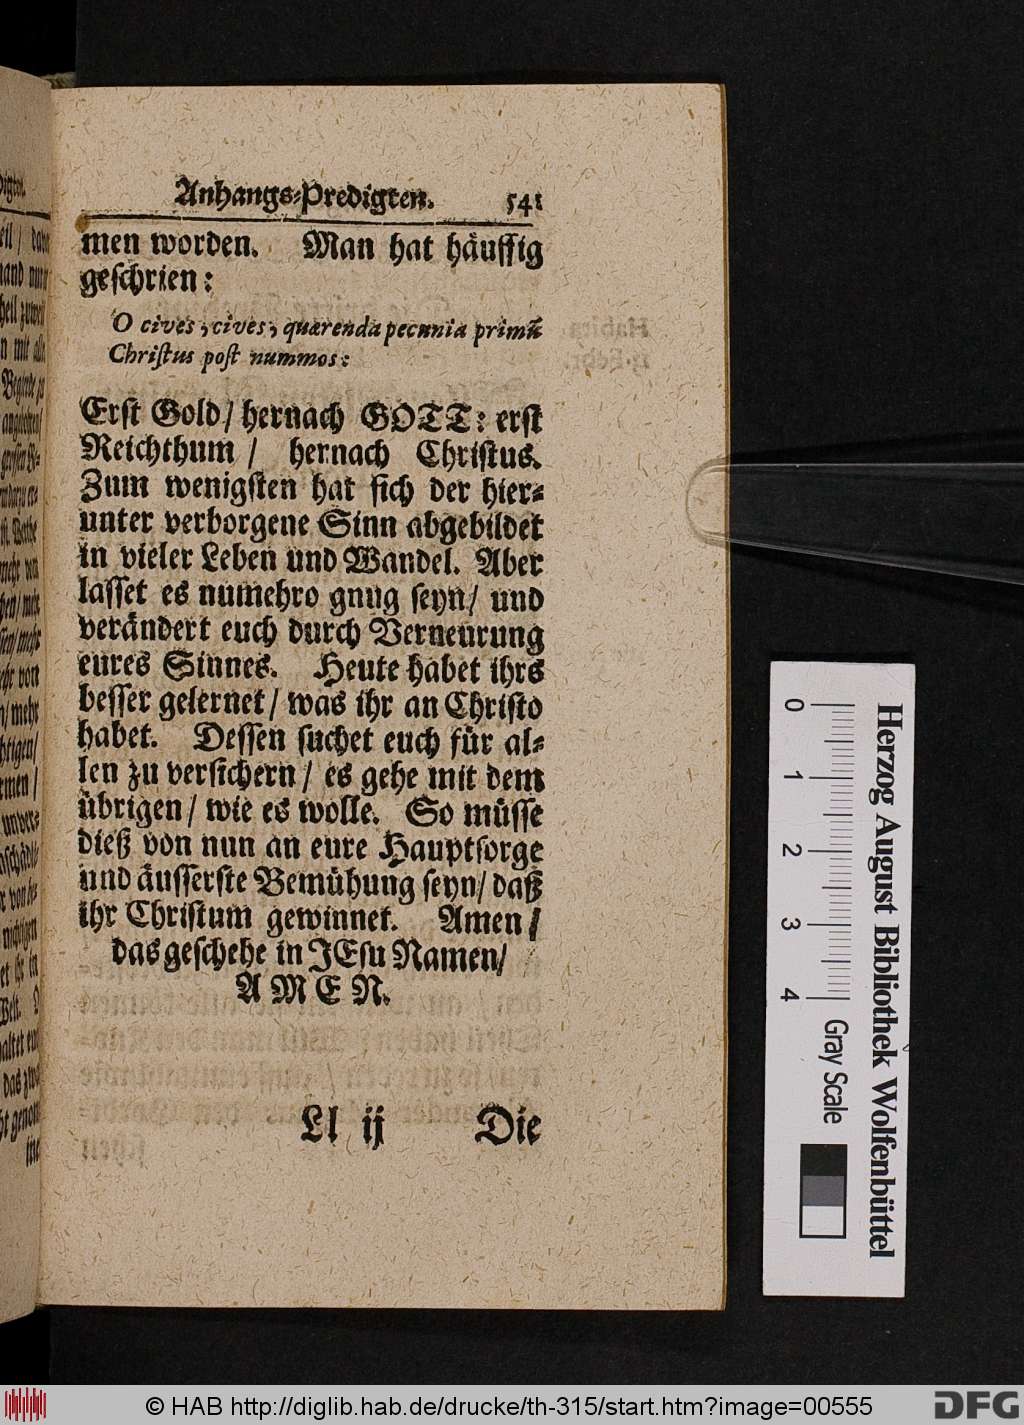 Anhangs-Predigten. 541
men worden. Man hat häuffig
geschrien:
O cives, cives, quærenda pecunia primũ
Christus post nummos:
Erst Gold/ hernach GOTT: erst
Reichthum / hernach Christus.
Zum wenigsten hat sich der hier-
unter verborgene Sinn abgebildet
in vieler Leben und Wandel. Aber
lasset es numehro gnug seyn/ und
verändert euch durch Verneurung
eures Sinnes. Heute habet ihrs
besser gelernet/ was ihr an Christo
habet. Dessen suchet euch für al-
len zu versichern/ es gehe mit dem
übrigen/ wie es wolle. So müsse
dieß von nun an eure Hauptsorge
und äusserste Bemühung seyn/ daß
ihr Christum gewinnet. Amen/
das geschehe in JEsu Namen/
AMEN.
Ll ij Die
0 1 2 3 4 Gray Scale
Herzog August Bibliothek Wolfenbüttel
© HAB http://diglib.hab.de/drucke/th-315/start.htm?image=00555
DFG